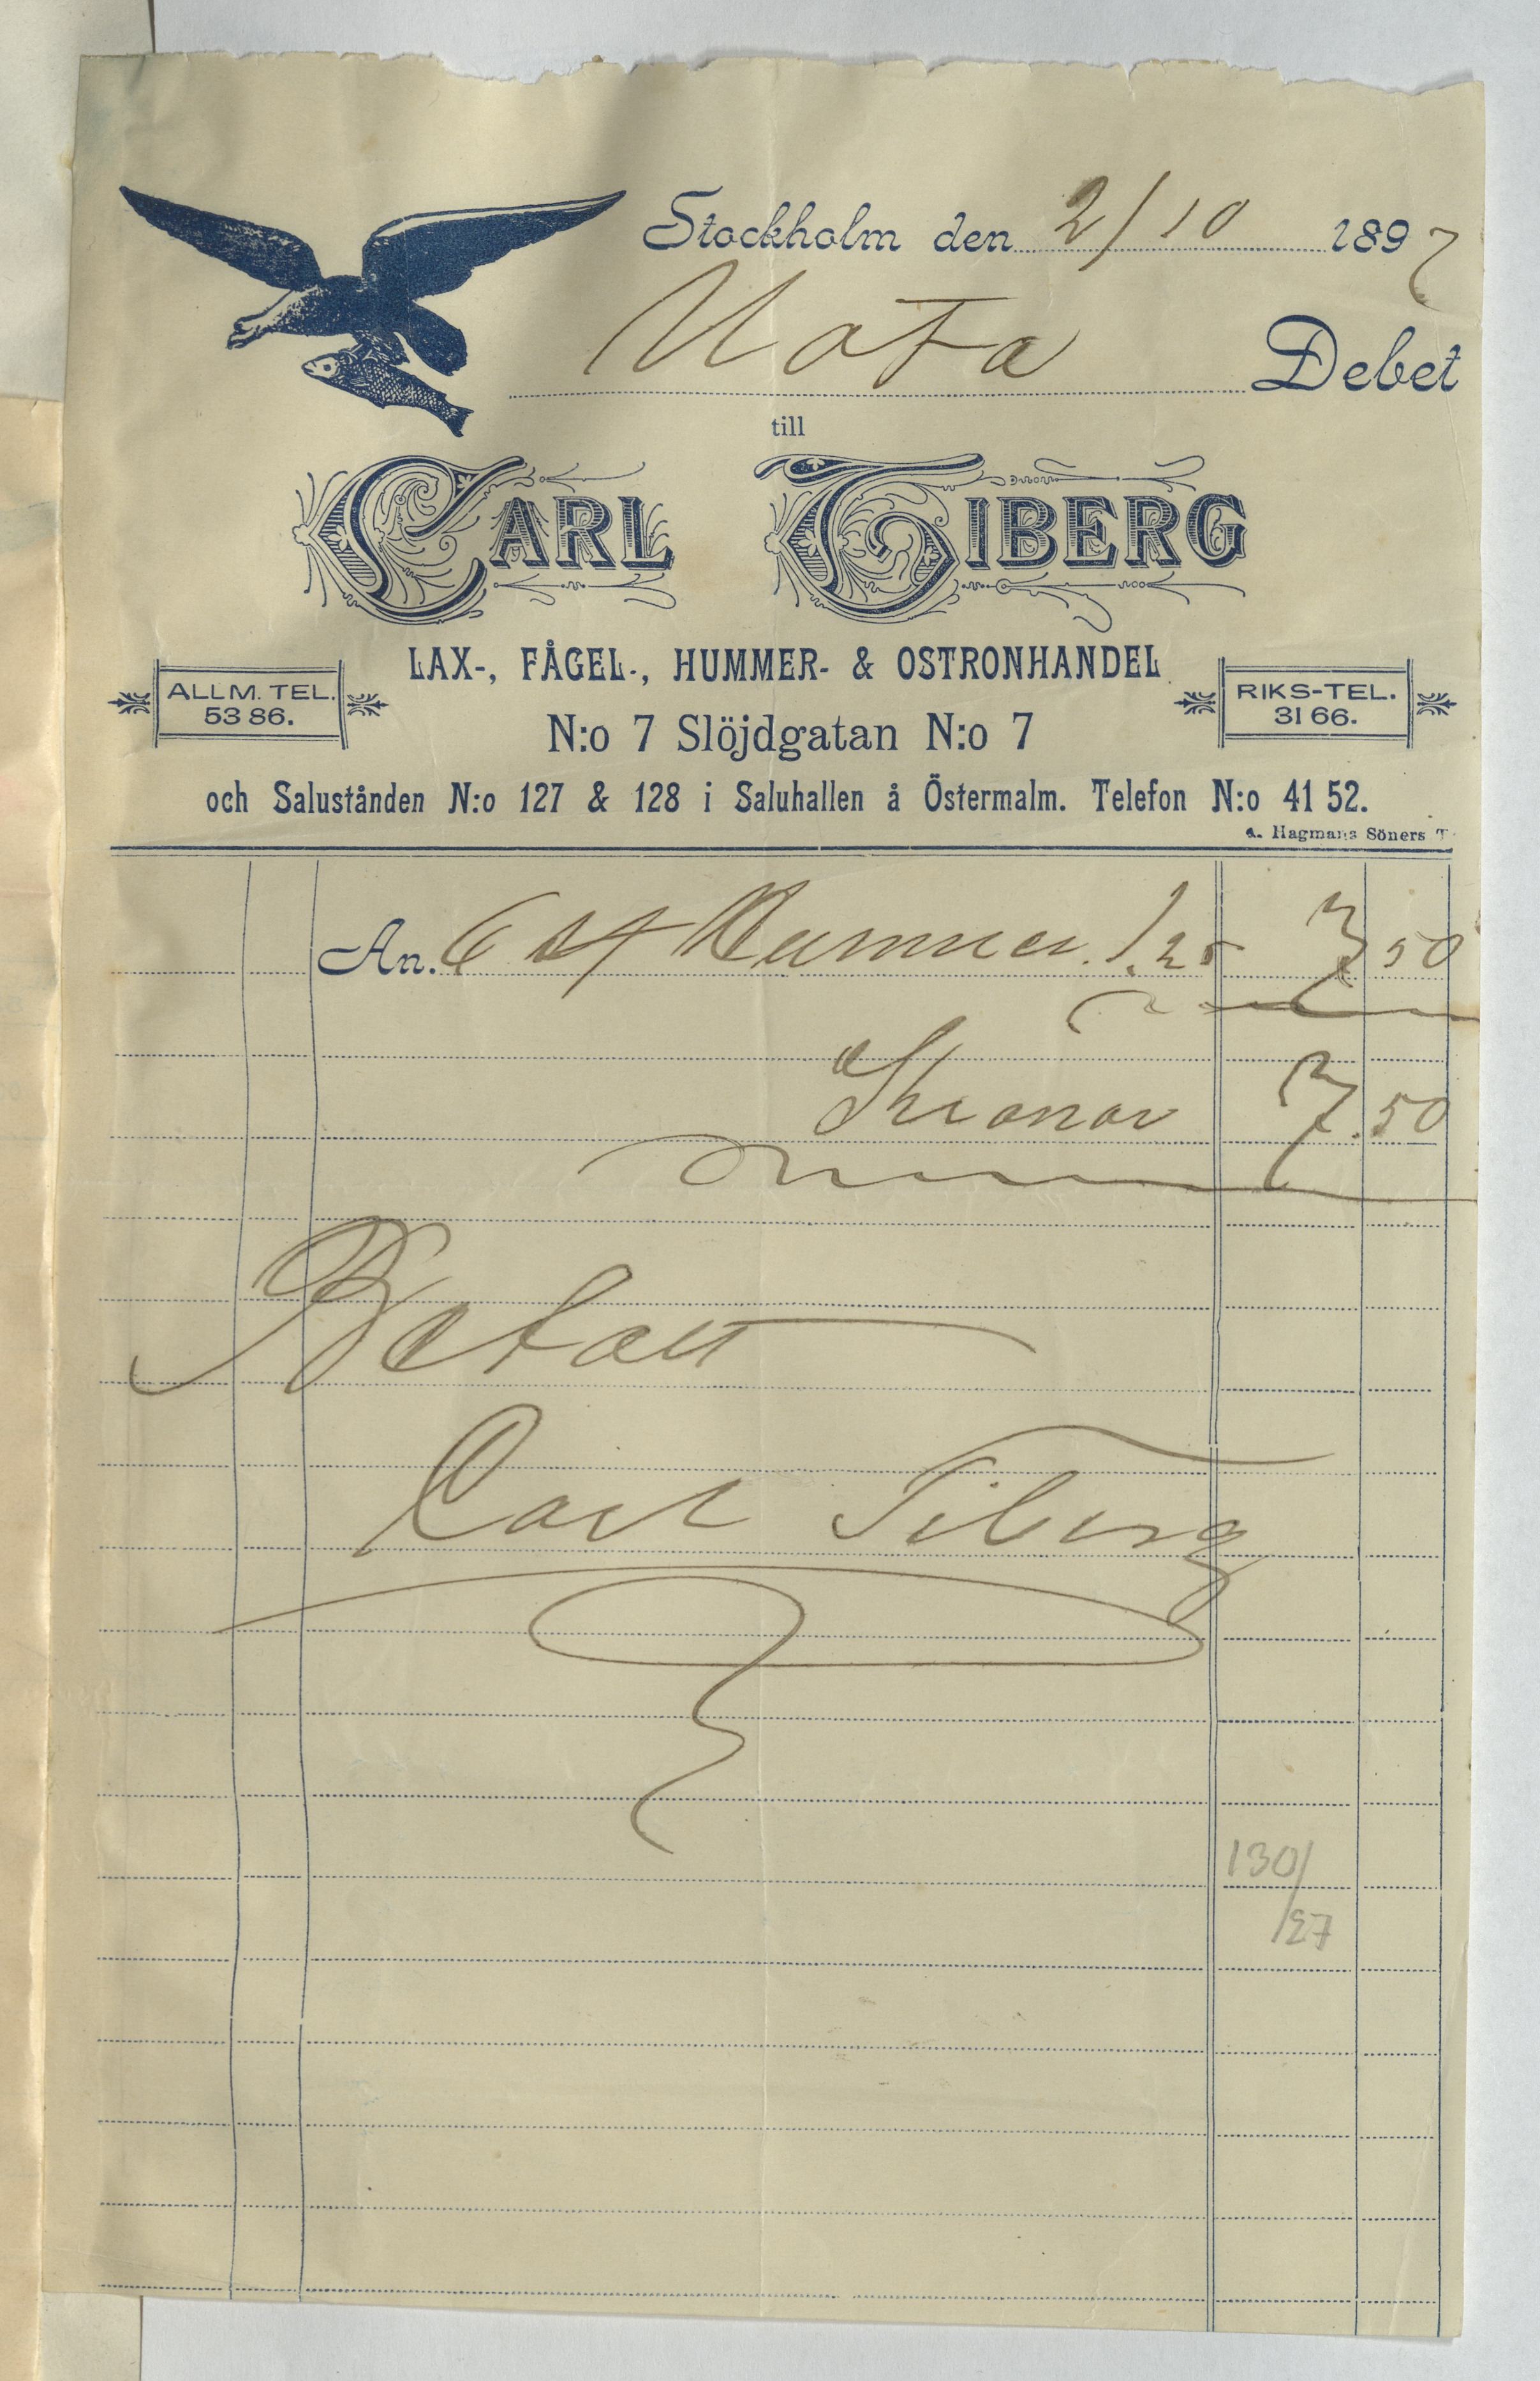 Stockholm den 2/10 1897
Nota Debet
till
CARL TIBERG
LAX-, FÅGEL-, HUMMER- & OSTRONHANDEL
ALLM. TEL.
53 86.
RIKS-TEL.
31 66.
N:o 7 Slöjdgatan N:o 7
och Salustånden N:o 127 & 128 i Saluhallen å Östermalm. Telefon N:o 41 52.
Hagmans Söners T
An. 6 st Hummer. 1.25 7 50
Kronor 7.50
Betalt
Carl Tiberg
130/
/27